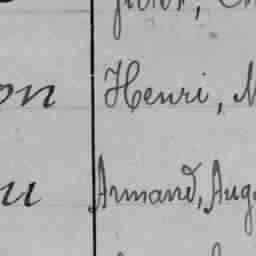 on Henri, M
u Armand, Aug